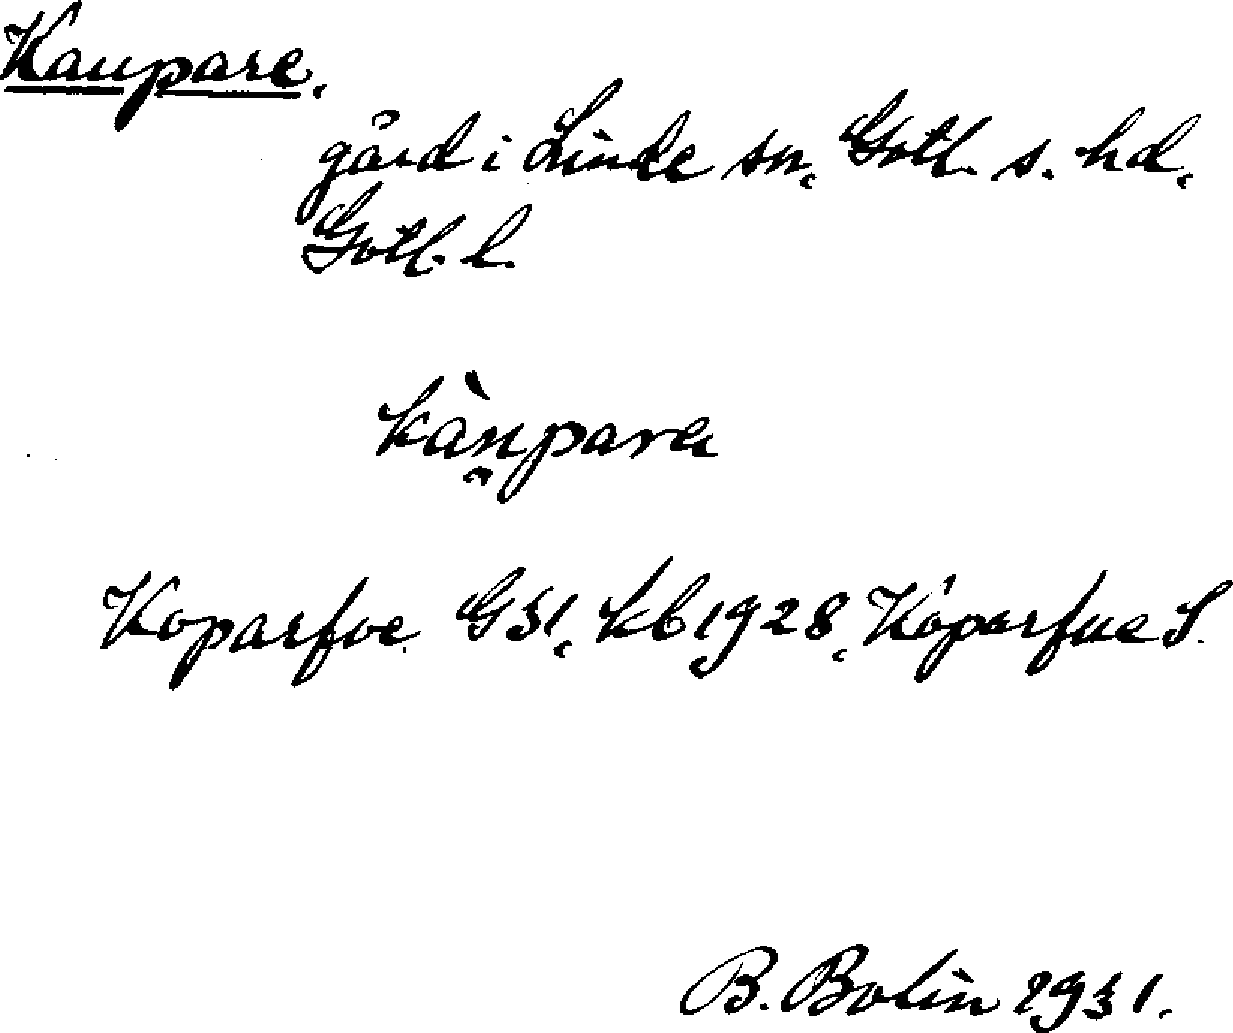 Kaupare.
gård i Linde sn, Gotl. s. hd,
Gotl. l.
kàu̯para
Koparfve G31, kb 1928, Kóparfve S.
B. Bolin 1931.